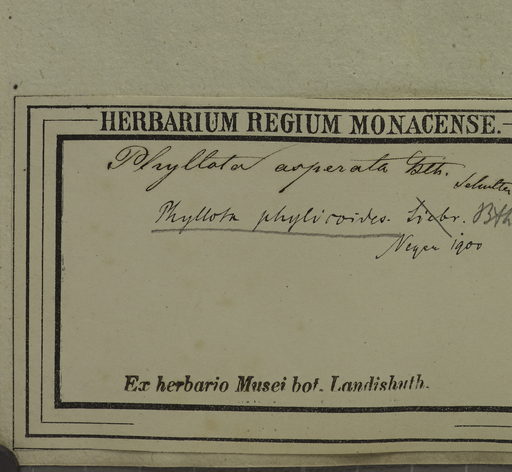 HERBARIUM REGIUM MONACENSE.
Phyllota asperata Bth.
Schulter
Phyllota phylicoides. Siebr. Bth
Meyer 1900
Ex herbario Musei bot. Landishuth.